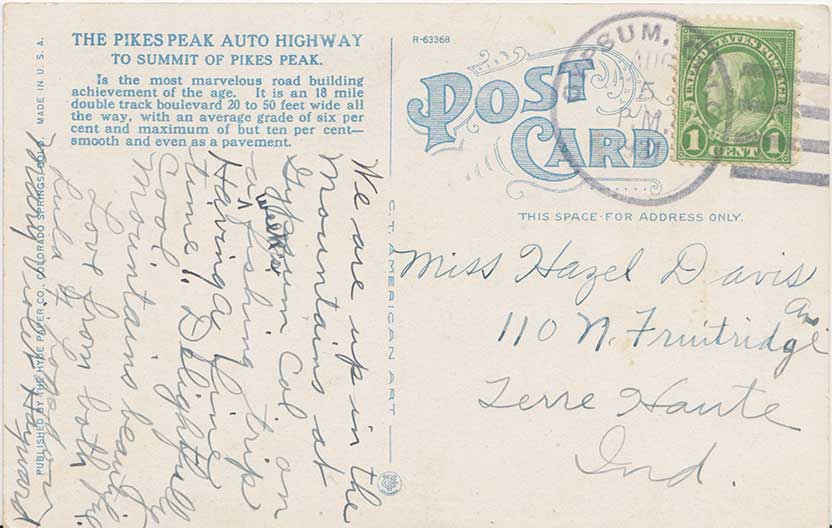 THE PIKES PEAK AUTO HIGHWAY
TO SUMMIT OF PIKES PEAK.
Is the most marvelous road building
achievement of the age. It is an 18 mile
double track boulevard 20 to 50 feet wide all
the way, with an average grade of six per
cent and maximum of but ten per cent—
smooth and even as a pavement.
PUBLISHED BY THE HYDE PAPER CO., COLORADO SPRINGS, COLO. MADE IN U. S. A.
We are up in the
Mountains at
Gypsum Col on
a weeks fishing trip
Having a fine
time, Delightfully
Cool
Mountains beautiful
Love from both
Lula &
Hayward
C. T. AMERICAN ART
R-63368
POST
CARD
SUM,
AUG
5
P.M.
UNITED STATES POSTAGE
1 CENT 1
THIS SPACE FOR ADDRESS ONLY.
Miss Hazel Davis
110 N. Fruitridge
Ave
Terre Haute
Ind.